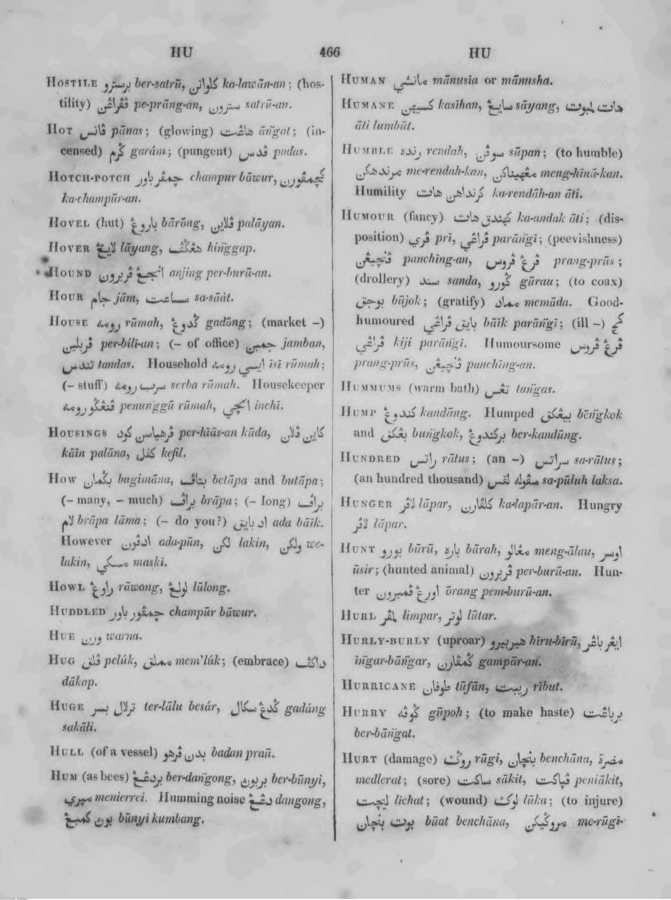 HU 466 HU
HOSTILE برسترو ber-satrū, کلوانن ka-lawān-an; (hos-
tility) ڤڤراڠن pe-prāng-an, سترون satrū-an.
HOT ڤانس pānas; (glowing) هاڠت āngat; (in-
censed) گرم garām; (pungent) ڤدس pudas.
HOTCH-POTCH چمڤر باور champur bāwur, کچمڤورن
ka-champūr-an.
HOVEL (hut) باروڠ bārōng, ڤلاين palāyan.
HOVER لايڠ lāyang, هڠݢڤ hinggap.
HOUND انجڠ ڤربرون anjing per-burū-an.
HOUR جام jām, ساعت sa-sāāt.
HOUSE رومه rūmah, گدوڠ gadōng; (market –)
ڤربلين per-bili-an; (– of office) جمبن jamban,
تندس tandas. Household ايسي رومه isī rūmah;
(– stuff) سرب رومه serba rūmah. Housekeeper
ڤڠگورومه penunggū rūmah, انچي inchi.
HOUSINGS ڤرهياسن کود per-hiās-an kūda, کاين ڤلان
kāin palāna, کفل kefil.
HOW بگمان bagimāna, بتاڤ betāpa and butāpa;
(– many, – much) براڤ brāpa; (– long) براڤ
لام brāpa lāma; (– do you?) اد بايق ada bāik.
However ادڤون ada-pūn, لکن lakin, ولکن we-
lakin, مسکي maski.
HOWL راوڠ rāwong, لولڠ lūlong.
HUDDLED چمڤور باور champūr būwur.
HUE ورن warna.
HUG ڤلق pelúk, مملق mem'lúk; (embrace) داکڤ
dākap.
HUGE ترلال بسر ter-lālu besár, گدڠ سکال gadáng
sakāli.
HULL (of a vessel) بدن ڤرهو badan praū.
HUM (as bees) بردڠڠ ber-dangong, بربون ber-būnyi,
ميري menierrei. Humming noise دڠڠ dangong,
بون کمبڠ būnyi kumbang.
HUMAN مانسي mānusia or mānusha.
HUMANE کسيهن kasīhan, سايڠ sāyang, هات لمبوت
āti lumbūt.
HUMBLE رنده rendah, سوڤن sūpan; (to humble)
مرندهکن me-rendah-kan, مڠهيناکن meng-hinā-kan.
Humility کرنداهن هات ka-rendāh-an āti.
HUMOUR (fancy) کهندق هات ka-andak āti; (dis-
position) ڤري prī, ڤراڠي parāngi; (peevishness)
ڤنچيڠن panching-an, ڤرڠ ڤروس prang-prūs;
(drollery) سند sanda, گورو gūrau; (to coax)
بوجق būjok; (gratify) ممادا memūda. Good-
humoured بايق ڤراڠي bāik parāngi; (ill –) کج
ڤراڠي kiji parāngi. Humoursome ڤرڠ ڤروس
prang-prūs, ڤنچيڠن panching-an.
HUMMUMS (warm bath) تڠس tangas.
HUMP کندوڠ kandūng. Humped بيڠکق bēngkok
and بڠکق bungkok, برکندوڠ ber-kandūng.
HUNDRED راتس rātus; (an –) سراتس sa-rātus;
(an hundred thousand) سڤوله لقس sa-pūluh laksa.
HUNGER لاڤر lāpar, کلڤارن ka-lapār-an. Hungry
لاڤر lāpar.
HUNT بورو būrū, باره bārah, مڠالو meng-ālau, اوسر
ūsir; (hunted animal) ڤربرون per-burū-an. Hun-
ter اورڠ ڤمبرون ōrang pem-burū-an.
HURL لمڤر limpar, لوتر lūtar.
HURLY-BURLY (uproar) هيربيرو hīru-bīrū, ايڠرباڠر
īngar-bāngar, گمڤارن gampār-an.
HURRICANE طوفان tūfān, ريبت ribut.
HURRY گوڤه gūpoh; (to make haste) برباڠت
ber-bāngat.
HURT (damage) روݢ rūgi, بنچان benchāna, مضرة
medlerat; (sore) ساکت sākit, ڤياکت peniākit,
ليچت lichat; (wound) لوک lūka; (to injure)
بوت بنچان būat benchāna, مروگيکن me-rūgi-